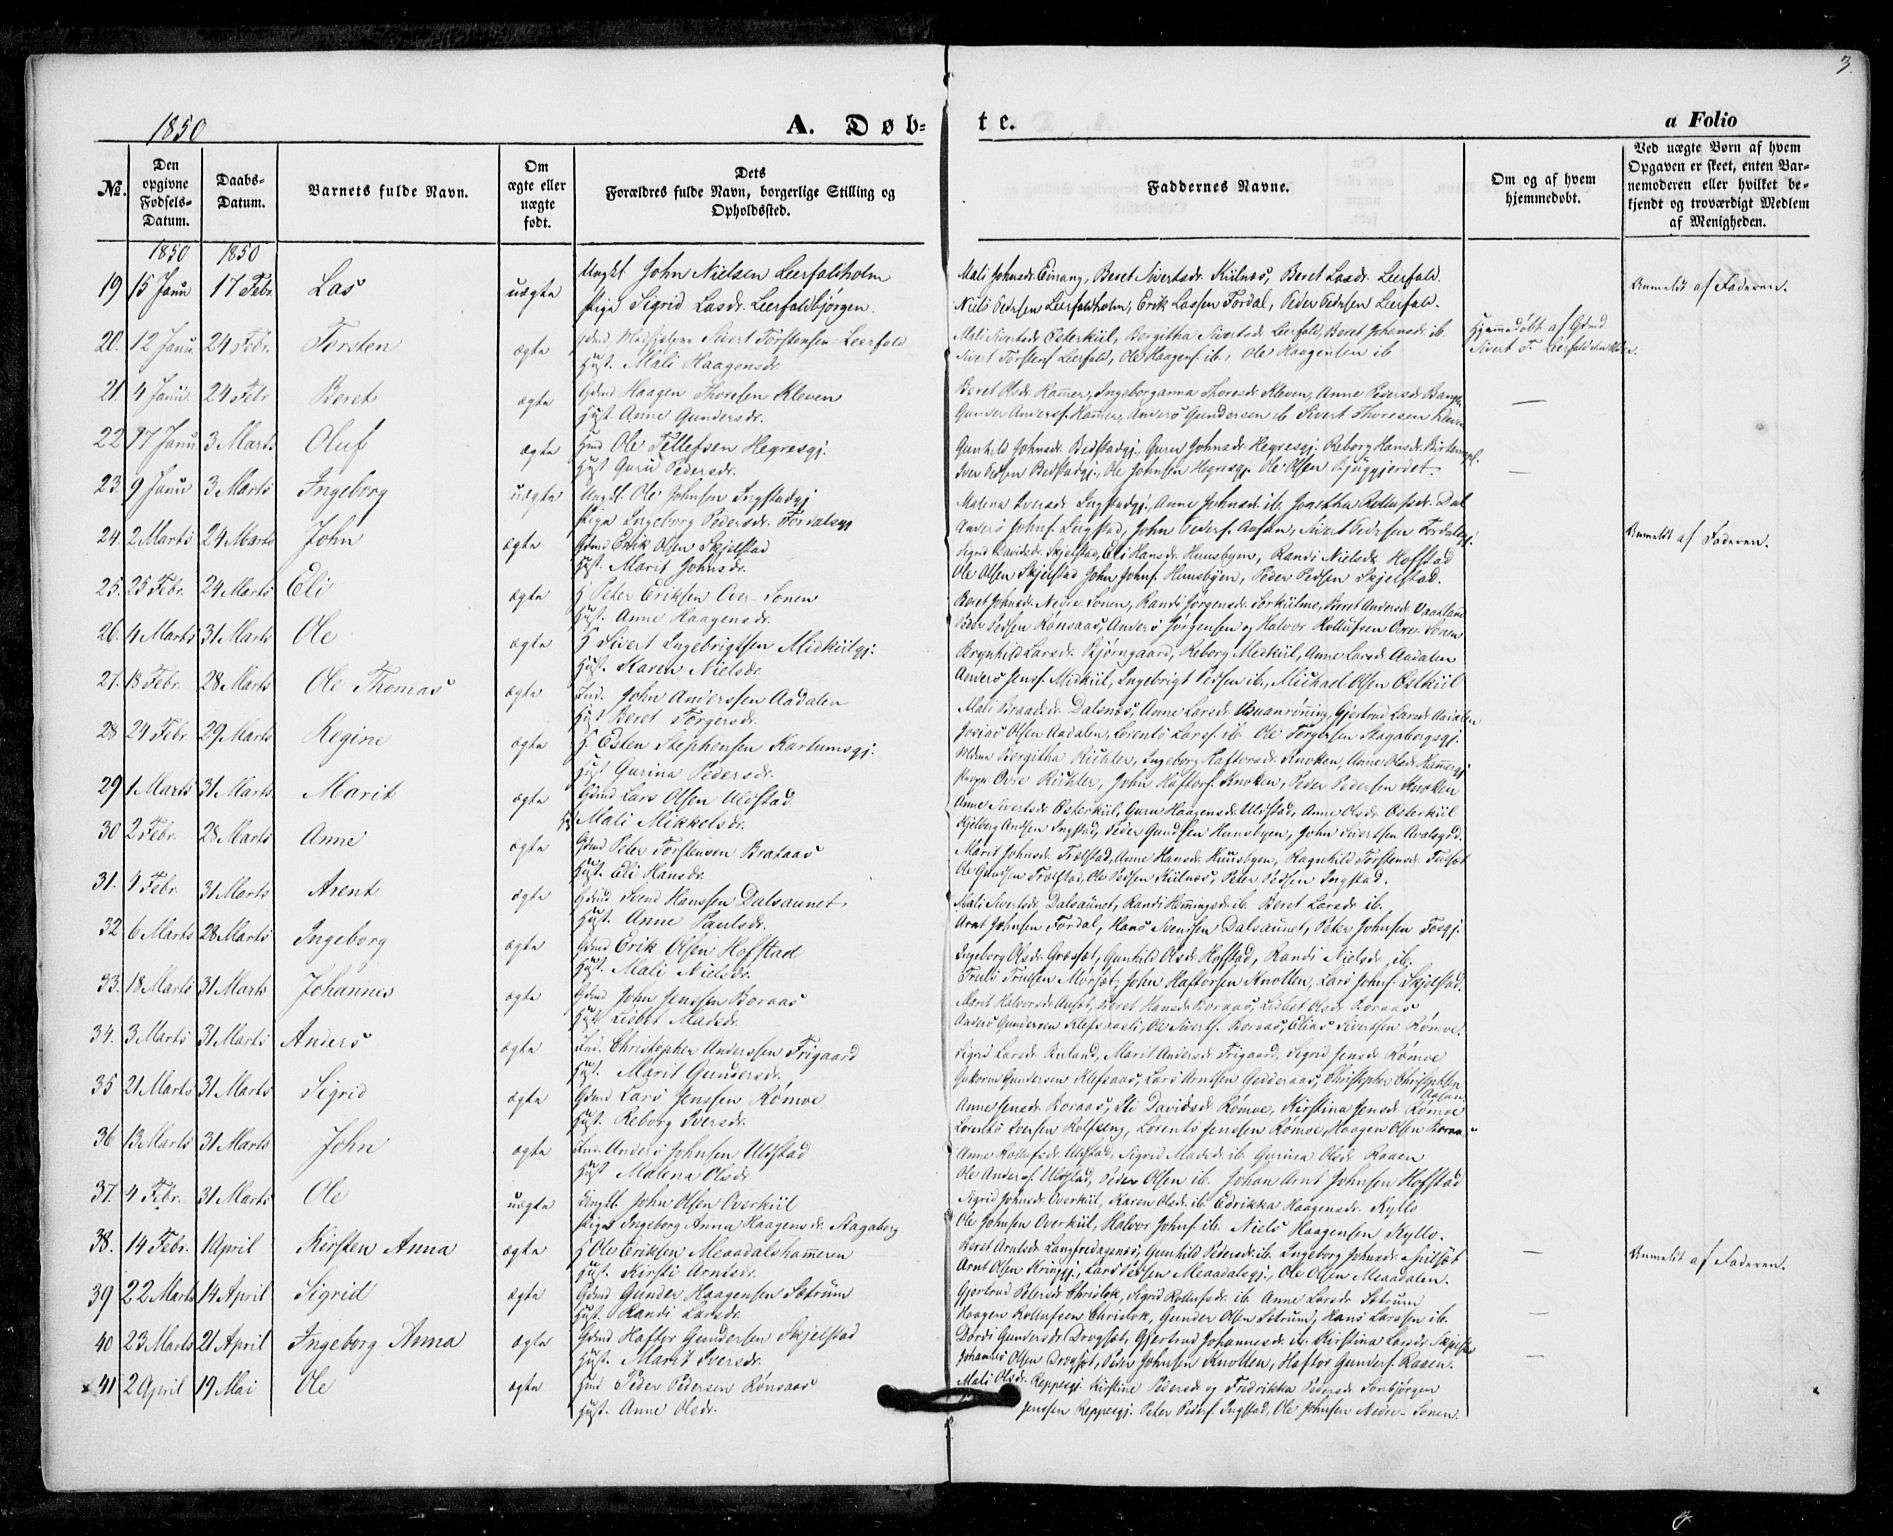 3.
1850
A. Døb-
te.
a Folio
No.
Den opgivne Fødsels-Datum.
Daabs-Datum.
Barnets fulde Navn.
Om ægte eller uægte født.
Dets Forældres fulde Navn, borgerlige Stilling og Opholdssted.
Faddernes Navne.
Om og af hvem hjemmedøbt.
Ved uægte Børn af hvem Opgaven er skeet, enten Barnemoderen eller hvilket bekjendt og troværdigt Medlem af Menigheden.
1850 1850
19 15 Janu 17 Febr. Las uægte Ungkl John Nielsen Leerfaldholm
Pige Sigrid Lasdr. Leerfaldbjørgen.
Mali Johnsdr. Einang, Beret Sivertsdr. Kiilnæs, Beret Lasdr. Leerfald.
Niels Pedersen Leerfaldholm, Erik Lassen Fordal, Peder Pedersen Leerfald.
Anmeldt af Faderen.
20. 12 Janu 24 Febr. Torsten ægte Sivert Torstensen Leerfald
Hust. Mali Haagensdr.
Mali Sivertsdr. Østerkiil, Bergitha Sivertsdr. Leerfald, Beret Johnsdr. ib.
Sivert Torstens. Leerfald, Ole Haagens. ib., Ole Haagensen ib
Hjemmedøbt af Gdmd
Sivert T. Leerfald
21. 4 Janu. 24 Febr Beret ægte Gdmd Haagen Thoresen Kleven
Hust. Anne Gundersdr.
Beret Olsdr. Hammer, Ingeborganna Thoresdr. Kleven, Anne Pedersdr.
Gunder Anders. Hammer, Anders Gundersen ib Sivert Thoresen Kleven
22 17 Janu 3 Marts Oluf ægte Hmd Ole Tellefsen Hegresgj.
Hust Guru Pedersdr.
Gunhild Johnsdr. Bedstadgj. Guru Johnsdr. Hegresgj. Reborg Hansdr.
Iver Pedsen Bedstadgj., Ole Johnsen Hegresgj. Ole Olsen Bjuggjerdet.
23. 9 Janu 3 Marts Ingeborg uægte Ungkl. Ole Johnsen Ingstadgj
Pige Ingeborg Pedersdr. Fordalsgj
Malena Iversdr. Ingstadgj., Anne Johnsdr. ib.
Anders Johns. Ingstad, John Peders. Aasan, Sivert Pedersen Fordalsgj.
Anmeldt af Faderen.
24 2 Marts 24 Marts John ægte Gdmd Erik Olsen Skjelstad
Hust. Marit Johnsdr.
Sigrid Davidsdr. Skjelstad, Eli Hansdr. Huusbyen, Randi Nielsdr. Hofstad
Ole Olsen Skjelstad John Johns. Huusbyen, Peder Pedsen Skjelstad.
25. 25 Febr. 24 Marts Eli ægte Peter Eriksen Over-Sonen
Hust. Anne Haagensdr.
Beret Johnsdr. Nedre Sonen, Randi Jørgensdr. Sorkiilmo, Beret Andersdr.
Peder Pedsen Rønsaas, Anders Jørgensen og Halvor Rollufsen Over Sonen
26. 4 Marts 31 Marts Ole ægte Sivert Ingebrigtsen Midkiilgj.
Hust. Karen Nielsdr.
Brynhild Larsdr. Bjørngaard, Reborg Midkiil, Anne Larsdr. Aadalen
Anders Jens. Midkiil, Ingebrigt Pedsen ib., Michael Olsen Østkiil
27. 18 Febr. 28 Marts Ole Thomas ægte Ind. John Anderssen Aadalen
Hust Beret Torgersdr.
Mali Dalsnæs, Anne Larsdr. Gjertrud Larsdr. Aadalen
Josias Olsen Aadalen, Lorents Lars. ib. Ole Torgersen Stagabergsgj.
28 24 Febr 29 Marts Regine ægte Esten Stephensen Kartumsgj.
Hust Gurina Pedersdr.
Bergitha Richter, Ingeborg Haftorsdr. Knoken, Anne Olsdr. Hammergj
Ove Richter, John Haftors. Knoken, Peder Pedersen Knoken
29 1 Marts 31 Marts Marit ægte Gdmd Lars Olsen Uldstad
Hust Mali Mikkelsdr.
Anne Sivertsdr. Østerkiil, Guru Haagensdr. Uldstad, Anne Olsdr. Østerkiil
Ingstad, Peder Gundsen Huusbyen, John Sivertsen
30 2 Febr. 28 Marts Anne ægte Gdmd Peter Torstensen Brataas
Hust. Eli Hansdr.
Marit Johnsdr. Trælstad, Anne Hansdr. Huusbyen, Ragnhild Torstensdr.
Ole Gundsen Trælstad, Ole Pedsen Kiilnæs, Peter Pedsen Ingstad.
31. 4 Febr. 31 Marts Arent ægte Gdmd Svend Hanssen Dalsaunet
Hust. Anne Paulsdr.
Mali Sivertsdr. Dalsaunet, Randi Hemmingsdr. ib. Beret Larsdr. ib.
Arnt Johnsen Fordal, Hans Svendsen Dalsaunet, Peter Johnsen
32 6 Marts 28 Marts Ingeborg ægte Gdmd Erik Olsen Hofstad
Hust. Mali Nielsdr.
Ingeborg Olsdr. Græsset, Gunhild Olsdr. Hofstad, Randi Nielsdr. ib.
Truls Trulsen Mørsæt, John Haftorsen Knotten, Lars Johns. Skjelstad.
33. 18 Marts 31 Marts Johannes ægte Gdmd John Jenssen Boraas
Hust. Lisbet Madsdr.
Marit Halvorsdr. Beret Hansdr. Boraas, Lisbet Olsdr. Boraas
Anders Gundersen Ole Siverts. Boraas, Elias Sivertsen Rømoe.
34. 3 Marts 31 Marts Anders ægte Ind. Christopher Anderssen Trigaard
Hust. Marit Gundersdr.
Sigrid Larsdr. Ruland, Marit Andersdr. Trigaard, Sigrid Jensdr. Rømoe
Gundersen Klefsaas, Lars Arntsen Gedderaas, Christopher
Aasan
35 21 Marts 31 Marts Sigrid ægte Gdmd Lars Jenssen Rømoe
Hust. Reborg Iversdr.
Anne Jensdr. Boraas, Eli Davidsdr. Rømoe, Kirstina Jensdr. Rømoe
Lorents Iversen Rolfseng, Lorents Jenssen Rømoe, Haagen Olsen Boraas
36 13 Marts 31 Marts John ægte Ind. Anders Johnsen Uldstad
Hust Malena Olsdr.
Anne Rollufsdr. Uldstad, Sigrid Madsdr. ib Gurina Olsdr. Raaen
Ole Anders. Uldstad, Peder Olsen ib. Johan Arnt Johnsen Hofstad
37. 4 Febr. 31 Marts Ole uægte Ungkl. John Olsen Overkiil
Pige Ingeborg Anna Haagensdr. Stagaberg
Sigrid Johnsdr. Overkiil, Karen Olsdr. ib. Edrikka Haagensdr. Kyllo
Ole Johnsen Overkiil, Halvor Johns. ib. Niels Haagensen Kyllo.
Anmeldt af Faderen.
38. 14 Febr. 1 April Kirsten Anna ægte Ole Eriksen Meaadalshammeren
Hust. Kirsti Arntsdr.
Beret Arntsdr. Langfredagenæs, Gunhild Pedersdr. ib. Ingeborg Johnsdr.
Arnt Olsen Kringgj., Lars Pedsen Meaadalsgj., Ole Olsen Meaadalen.
39 22 Marts 14 April Sigrid ægte Gdmd Gunder Haagensen Sætrum
Hust. Randi Larsdr.
Gjertrud Petersdr. Sigrid Rollufsdr. ib. Anne Larsdr. Setrum
Haagen Rollufsen Gunder Olsen Setrum, Hans Larssen ib.
40 23 Marts 21 April Ingeborg Anna ægte Gdmd Haftor Gundersen Skjelstad
Hust. Marit Iversdr.
Dordi Gundersdr. Drogset, Gjertrud Johannesdr. ib. Kirstina Larsdr. Skjelstad
Johannes Olsen Drogset, Peder Johnsen Knotten, Haftor Gunders. Raaen.
41 2 April 19 Mai Ole ægte Hmd Peder Pedersen Rønsaas
Hust. Anne Olsdr.
Mali Olsdr. Reppesgj. Kirstine Pedersdr. og Fredrikka Pedersdr. Sonbjørgen
Jenssen Reppesgj. Peter Peders. Ingstad, Ole Johnsen Nedre-Sonen.